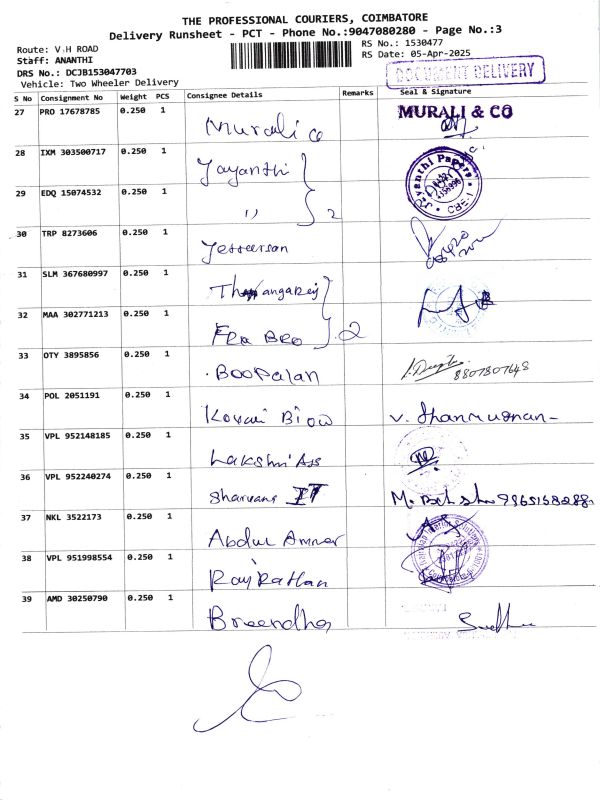 THE PROFESSIONAL COURIERS, COIMBATORE
Delivery Runsheet - PCT - Phone No.:9047080280 - Page No.:3
Route: V.H ROAD
RS No.: 1530477
Staff: ANANTHI
RS Date: 05-Apr-2025
DRS No.: DCJB153047703
DOCUMENT DELIVERY
Vehicle: Two Wheeler Delivery
S No Consignment No Weight PCS Consignee Details Remarks Seal & Signature
27 PRO 17678785 0.250 1 Murali co MURALI & CO
28 IXM 303500717 0.250 1 Jayanthi Jayanthi Papers CBE-1
29 EDQ 15074532 0.250 1 " 2
30 TRP 8273606 0.250 1 Jefferson
31 SLM 367680997 0.250 1 Thangaraj
32 MAA 302771213 0.250 1 Fra Bro 2
33 OTY 3895856 0.250 1 Boopalan 8807807648
34 POL 2051191 0.250 1 Kovai Biow V. Shanmugnan
35 VPL 952148185 0.250 1 Lakshmi Ass
36 VPL 952240274 0.250 1 Sharvans IT
37 NKL 3522173 0.250 1 Abdul Ammer
38 VPL 951998554 0.250 1 Raj Rathan
39 AMD 30250790 0.250 1 Breendha